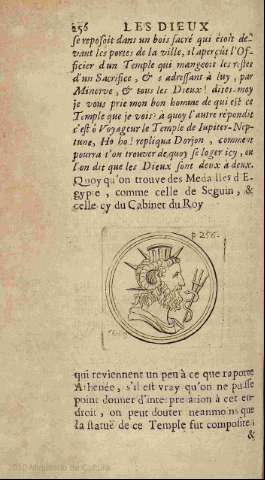 256 LES DIEUX
se reposoit dans un bois sacré qui étoit de-
vant les portes de la ville, il aperçût l'Of-
ficier d'un Temple qui mangeoit les restes
d'un Sacrifice, & s'adressant à luy, par
Minerve, & tous les Dieux! dites-moy
je vous prie mon bon homme de qui est ce
Temple que je vois: à quoy l'autre répondit
c'est ô Voyageur le Temple de Iupiter-Nep-
tune, Ho ho! repliqua Dorion, comment
pourra t'on trouver de quoy se loger icy, ou
l'on dit que les Dieux sont deux à deux.
Quoy qu'on trouve des Medailles d'E-
gypte, comme celle de Seguin, &
celle-cy du Cabinet du Roy
p 256.
qui reviennent un peu à ce que raporte
Athenée, s'il est vray qu'on ne puisse
point donner d'interpretation à cet en-
droit, on peut douter neanmoins que
la statuë de ce Temple fut composée:
&
2010 Ministerio de Cultura